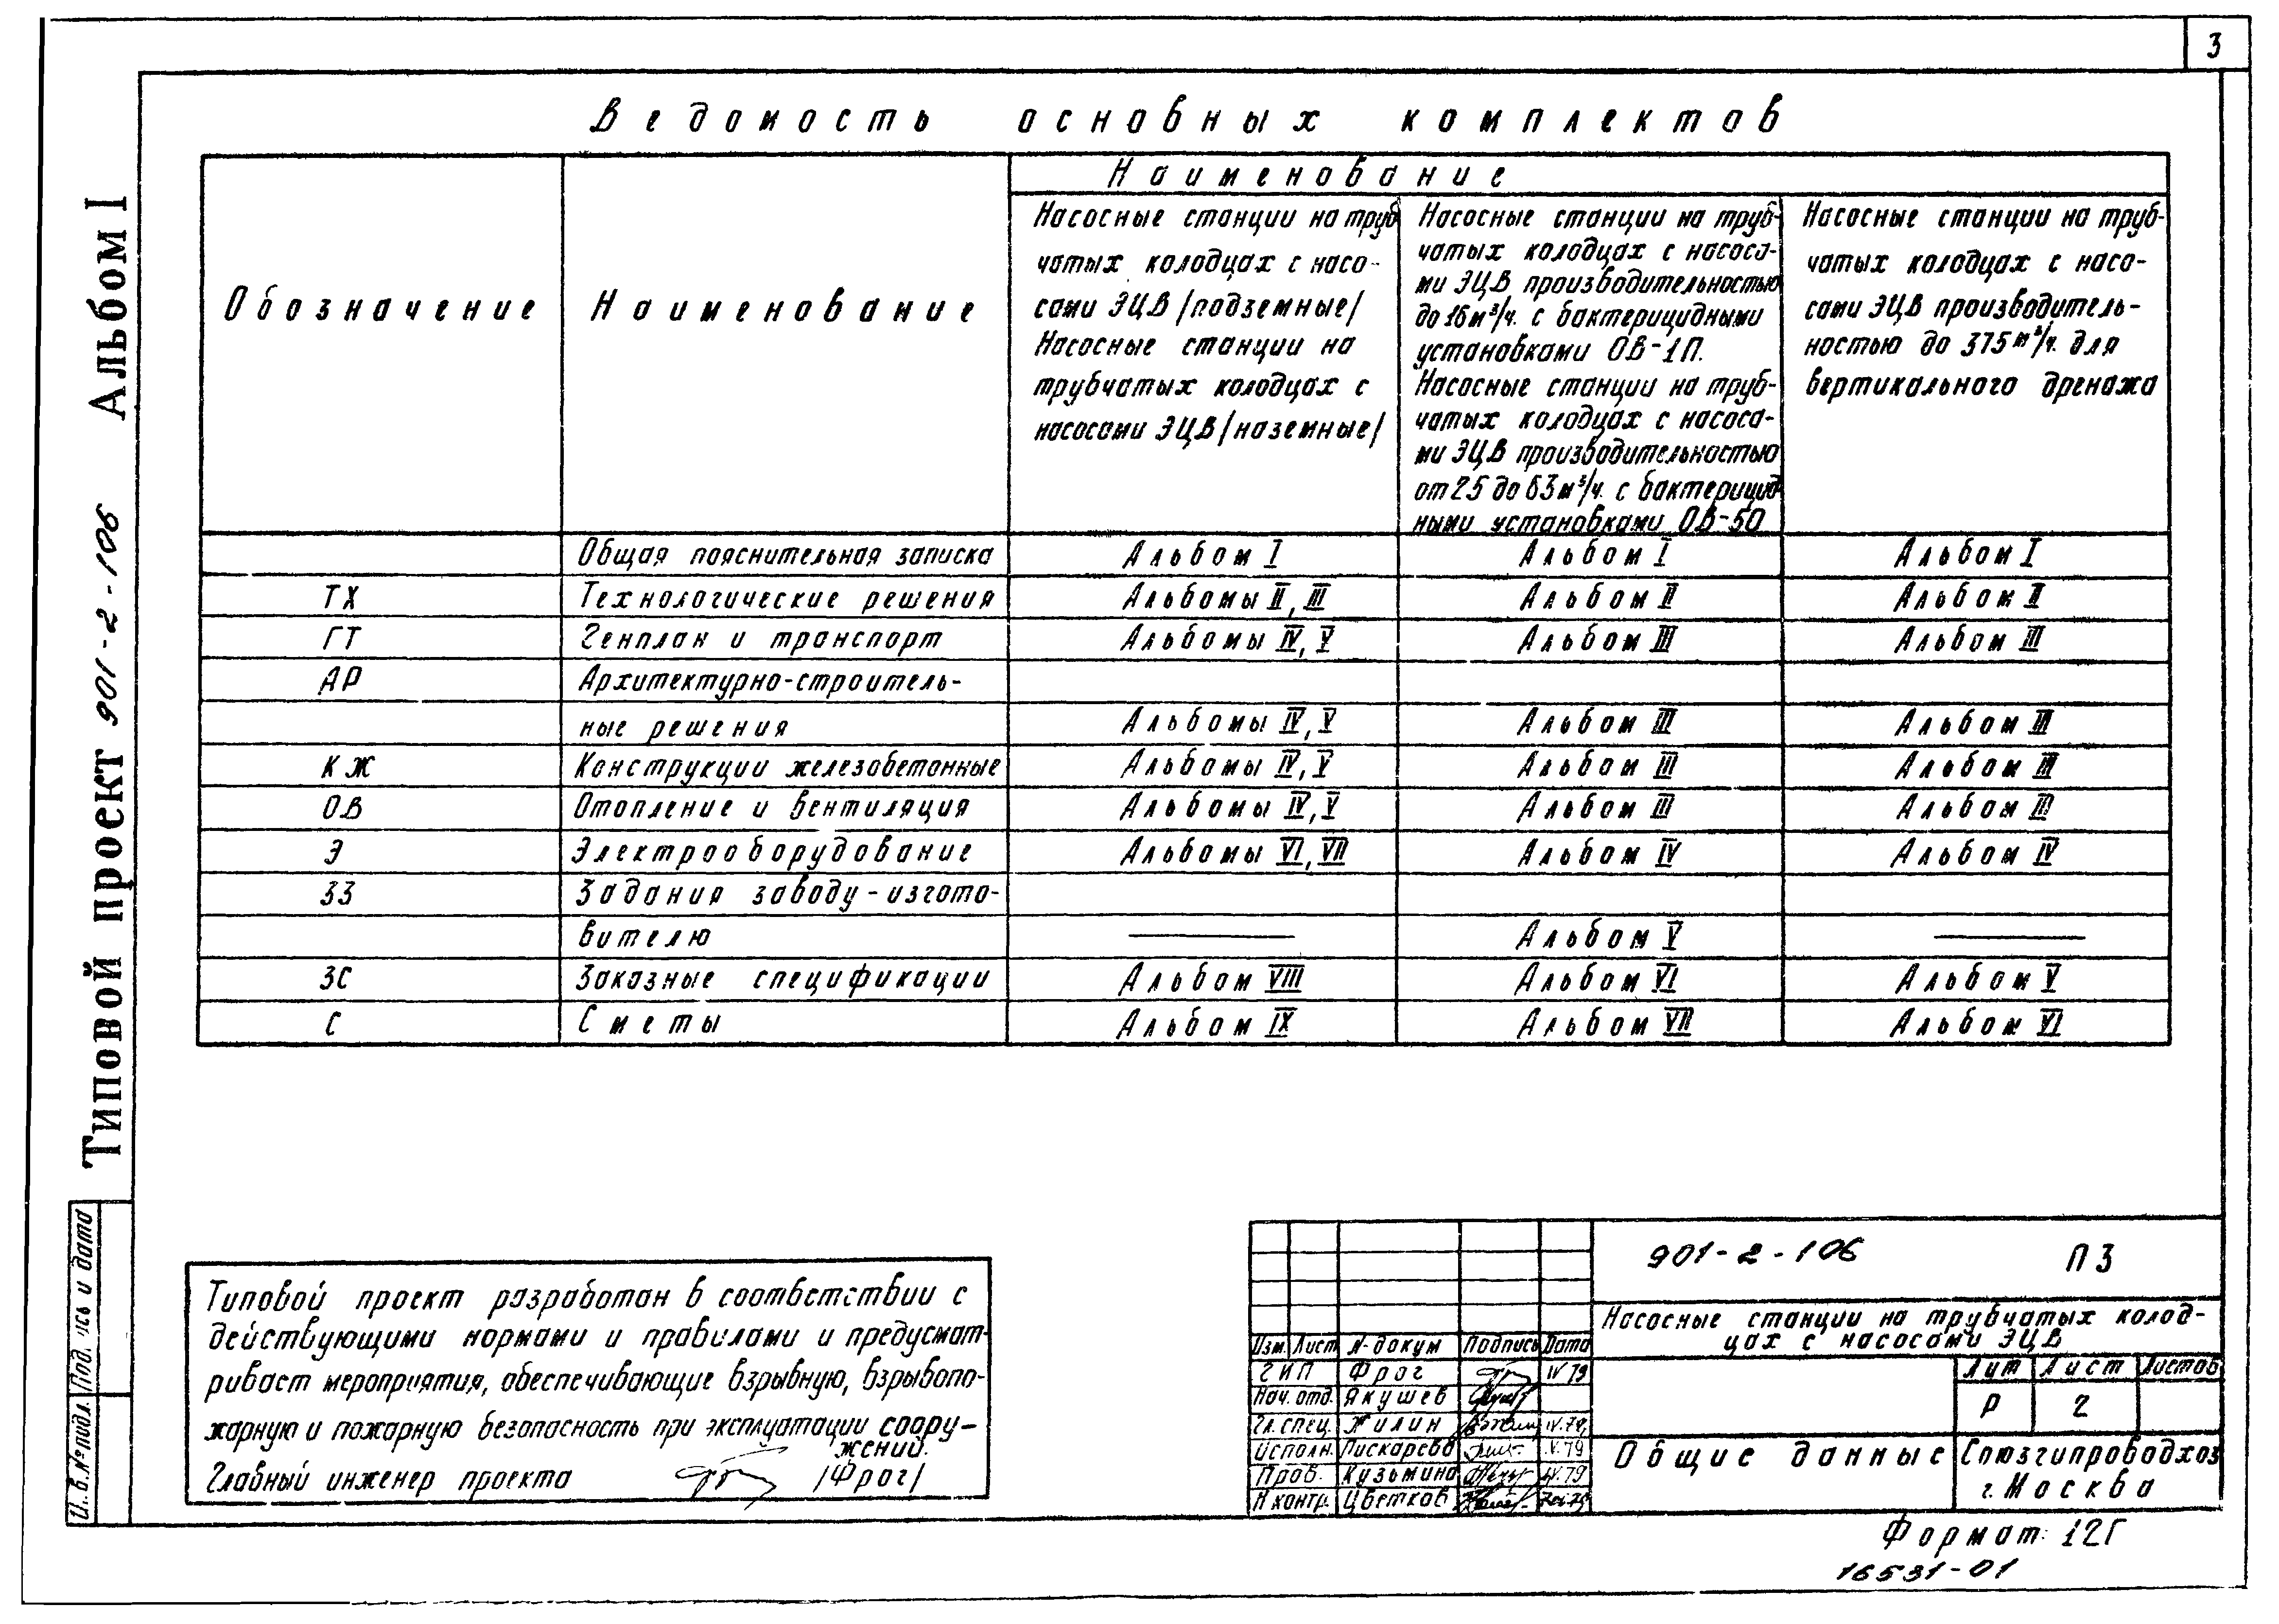 3
Типовой проект 901-2-106 Альбом I
Ведомость основных комплектов
Обозначение
Наименование
Наименование
Насосные станции на труб
чатых колодцах с насо-
сами ЭЦВ /подземные/
Насосные станции на
трубчатых колодцах с
насосами ЭЦВ /наземные/
Насосные станции на труб-
чатых колодцах с насоса-
ми ЭЦВ производительностью
до 16 м³/ч. с бактерицидными
установками ОВ-1П.
Насосные станции на труб-
чатых колодцах с насоса-
ми ЭЦВ производительностью
от 25 до 63 м³/ч. с бактерицид
ными установками ОВ-50
Насосные станции на труб-
чатых колодцах с насо-
сами ЭЦВ производитель-
ностью до 375 м³/ч. для
вертикального дренажа
Общая пояснительная записка Альбом I Альбом I Альбом I
ТХ Технологические решения Альбомы II, III Альбом II Альбом II
ГТ Генплан и транспорт Альбомы IV, V Альбом III Альбом III
АР Архитектурно-строитель-
ные решения Альбомы IV, V Альбом III Альбом III
КЖ Конструкции железобетонные Альбомы IV, V Альбом III Альбом III
ОВ Отопление и вентиляция Альбомы IV, V Альбом III Альбом III
Э Электрооборудование Альбомы VI, VII Альбом IV Альбом IV
ЗЗ Задания заводу-изгото-
вителю — Альбом V —
ЗС Заказные спецификации Альбом VIII Альбом VI Альбом V
С Сметы Альбом IX Альбом VII Альбом VI
Типовой проект разработан в соответствии с
действующими нормами и правилами и предусмат-
ривает мероприятия, обеспечивающие взрывную, взрывопо-
жарную и пожарную безопасность при эксплуатации соору-
жений.
Главный инженер проекта /Фрог/
901-2-106 ПЗ
Насосные станции на трубчатых колод-
цах с насосами ЭЦВ
Изм. Лист №докум Подпись Дата
ГИП Фрог IV 79
Нач. отд. Якушев
Гл. спец. Жилин IV.79.
Исполн. Пискарева V.79
Пров. Кузьмина IV.79
Н контр. Цветков
Лит Лист Листов
Р 2
Общие данные
Союзгипроводхоз
г. Москва
Формат: 12Г
16531-01
Под. ись и дата
И. в. № подл.